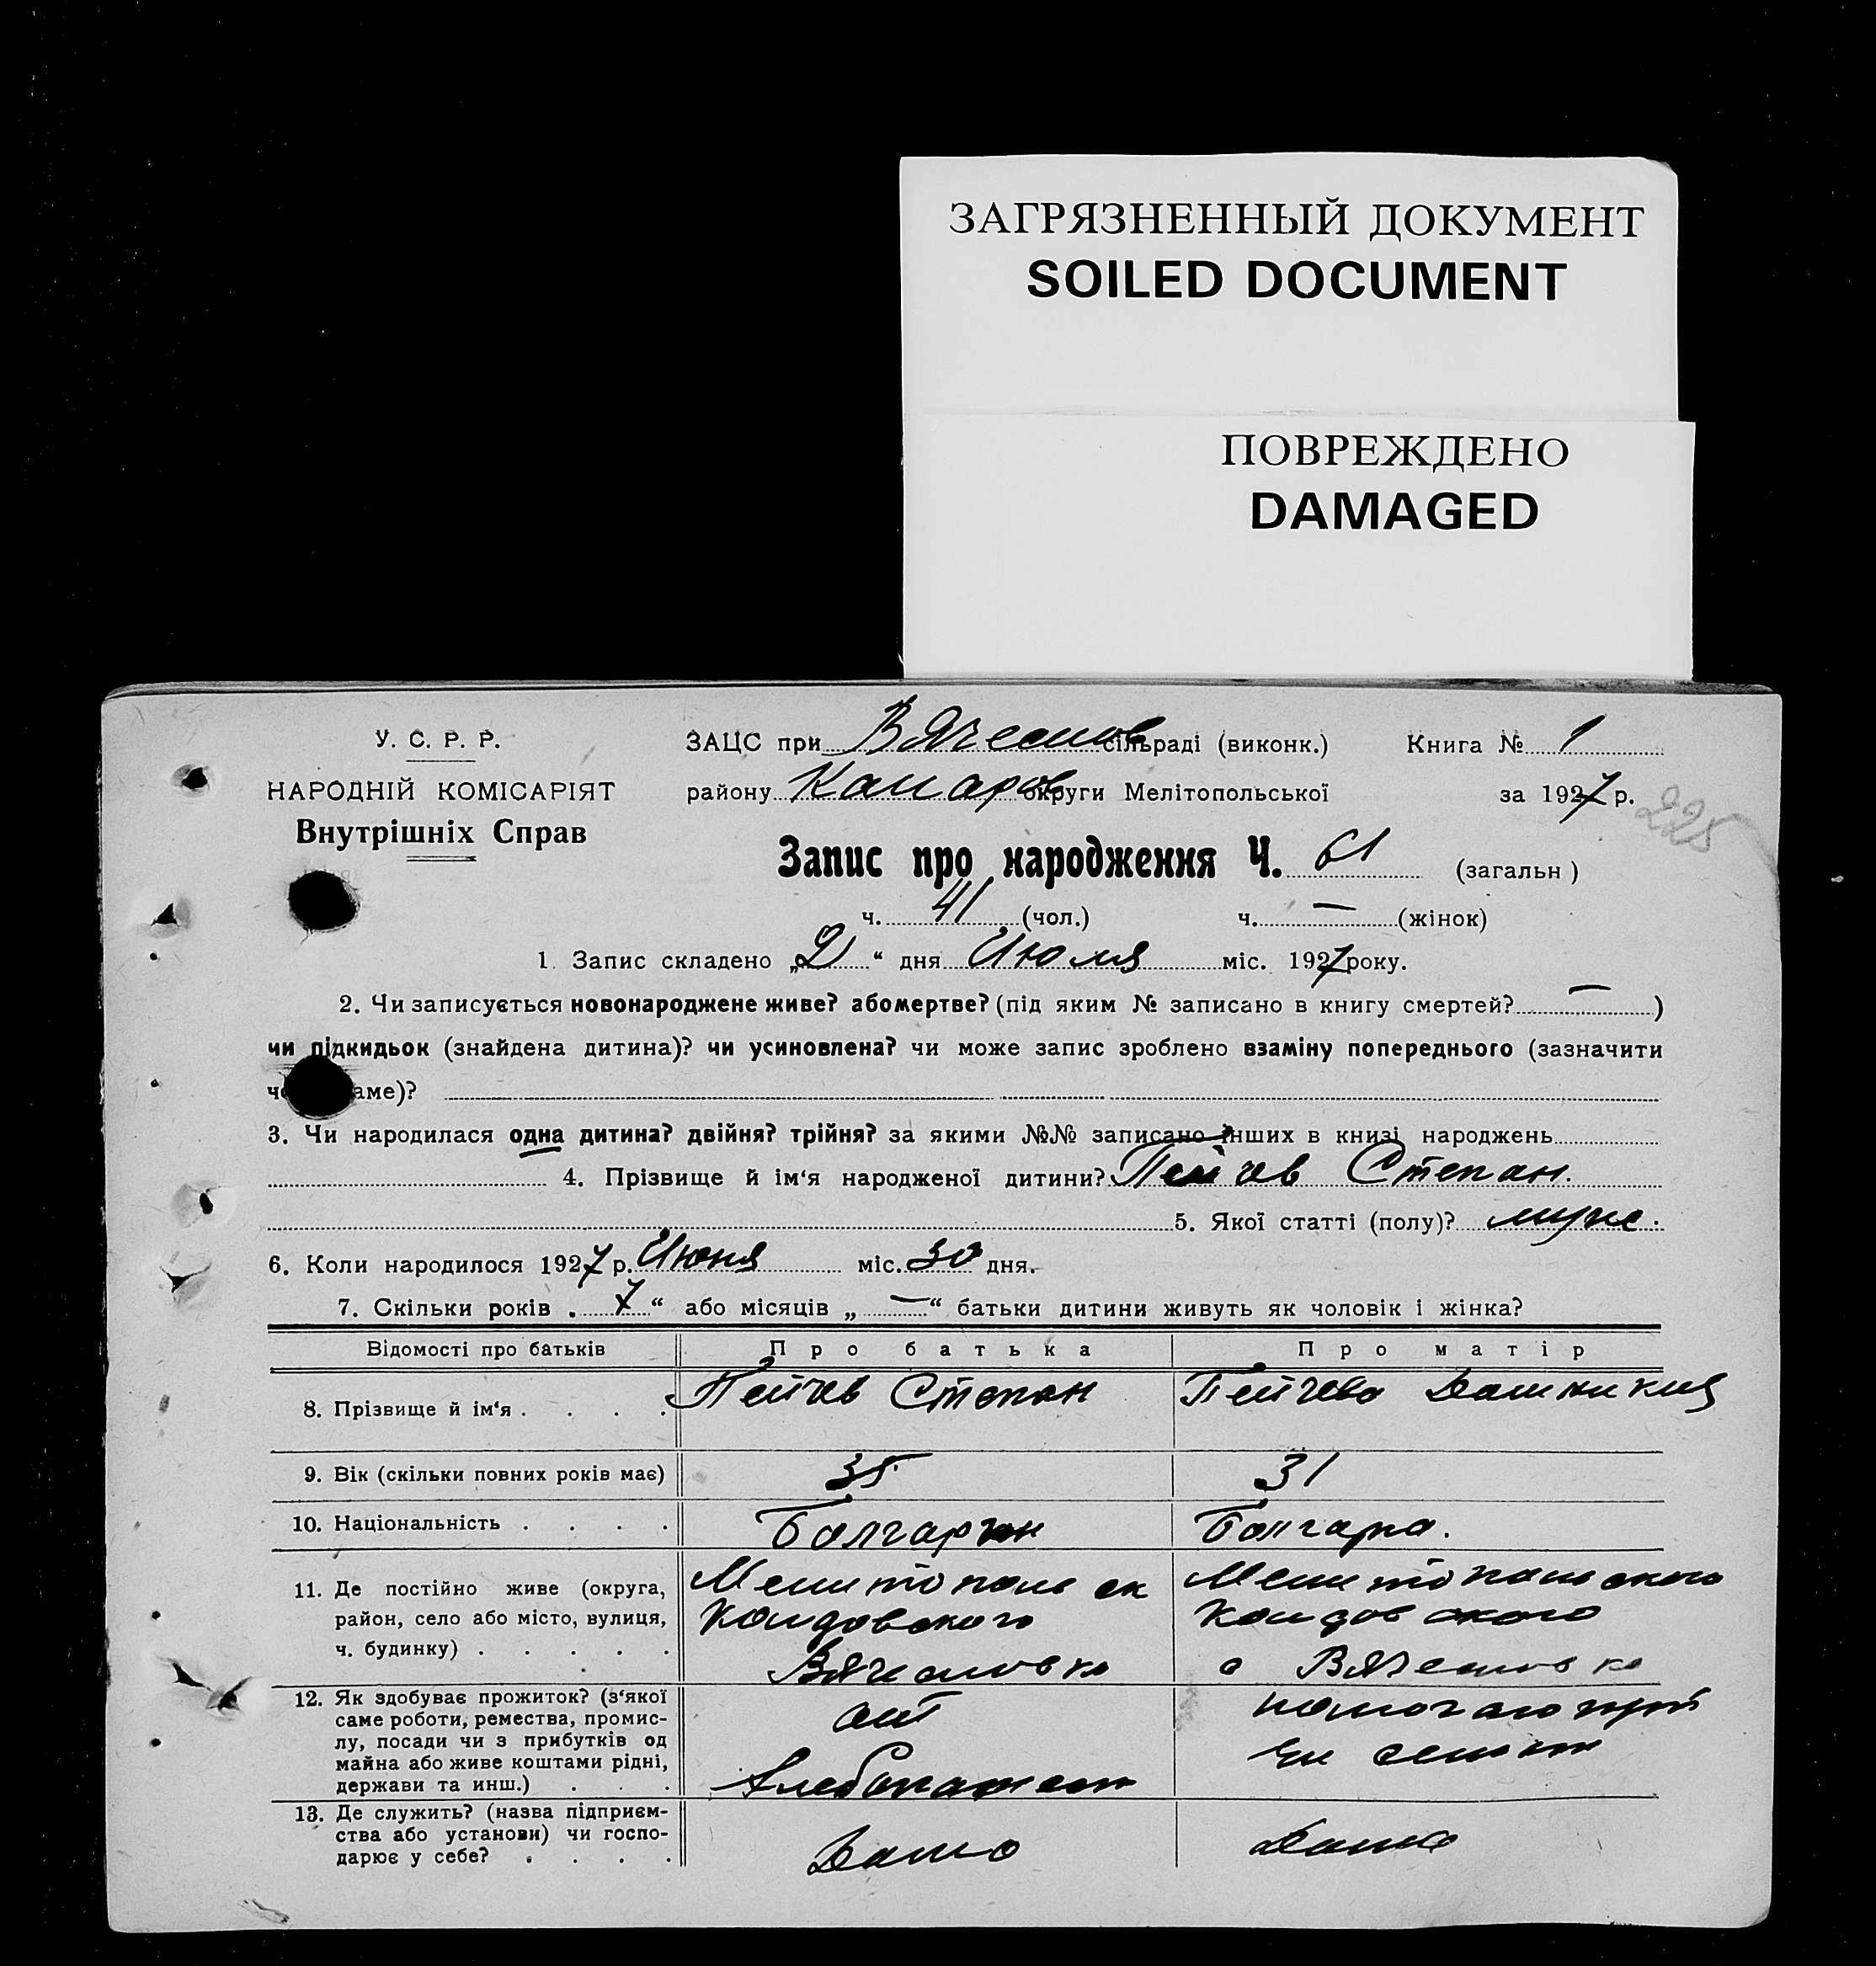 ЗАГРЯЗНЕННЫЙ ДОКУМЕНТ
SOILED DOCUMENT
ПОВРЕЖДЕНО
DAMAGED
У. С. Р. Р.
НАРОДНІЙ КОМІСАРІЯТ
Внутрішніх Справ
ЗАЦС при Вячеслов сільраді (виконк.) Книга № 1
району округи Мелітопольської за 1927 р.
225
Запис про народження Ч. 61 (загальн )
ч. 41 (чол.) ч. — (жінок)
1. Запис складено „2“ дня Июля міс. 1927 року.
2. Чи записується новонароджене живе? або мертве? (під яким № записано в книгу смертей? — )
чи підкидьок (знайдена дитина)? чи усиновлена? чи може запис зроблено взаміну попереднього (зазначити
аме)?
3. Чи народилася одна дитина? двійня? трійня? за якими №№ записано інших в книзі народжень
4. Прізвище й ім‘я народженої дитини? Пейчев Степан.
5. Якої статті (полу)? муж.
6. Коли народилося 1927 р. Июня міс. 30 дня.
7. Скільки років „7“ або місяців „—“ батьки дитини живуть як чоловік і жінка?
Відомості про батьків Про батька Про матір
8. Прізвище й ім‘я . . . . Пейчев Степан Пейчева
9. Вік (скільки повних років має) 35 31
10. Національність . . . . Болгарин Болгарка.
11. Де постійно живе (округа, Мелитопольск Мелитопольского
район, село або місто, вулиця,
ч. будинку) . . . . . Вячеславка с Вячеславка
12. Як здобуває прожиток? (з‘якої
саме роботи, ремества, промис-
лу, посади чи з прибутків од
майна або живе коштами рідні,
держави та инш.) . . . Хлебопашест
13. Де служить? (назва підприєм-
ства або установи) чи госпо-
дарює у себе? . . . . Дома Дома